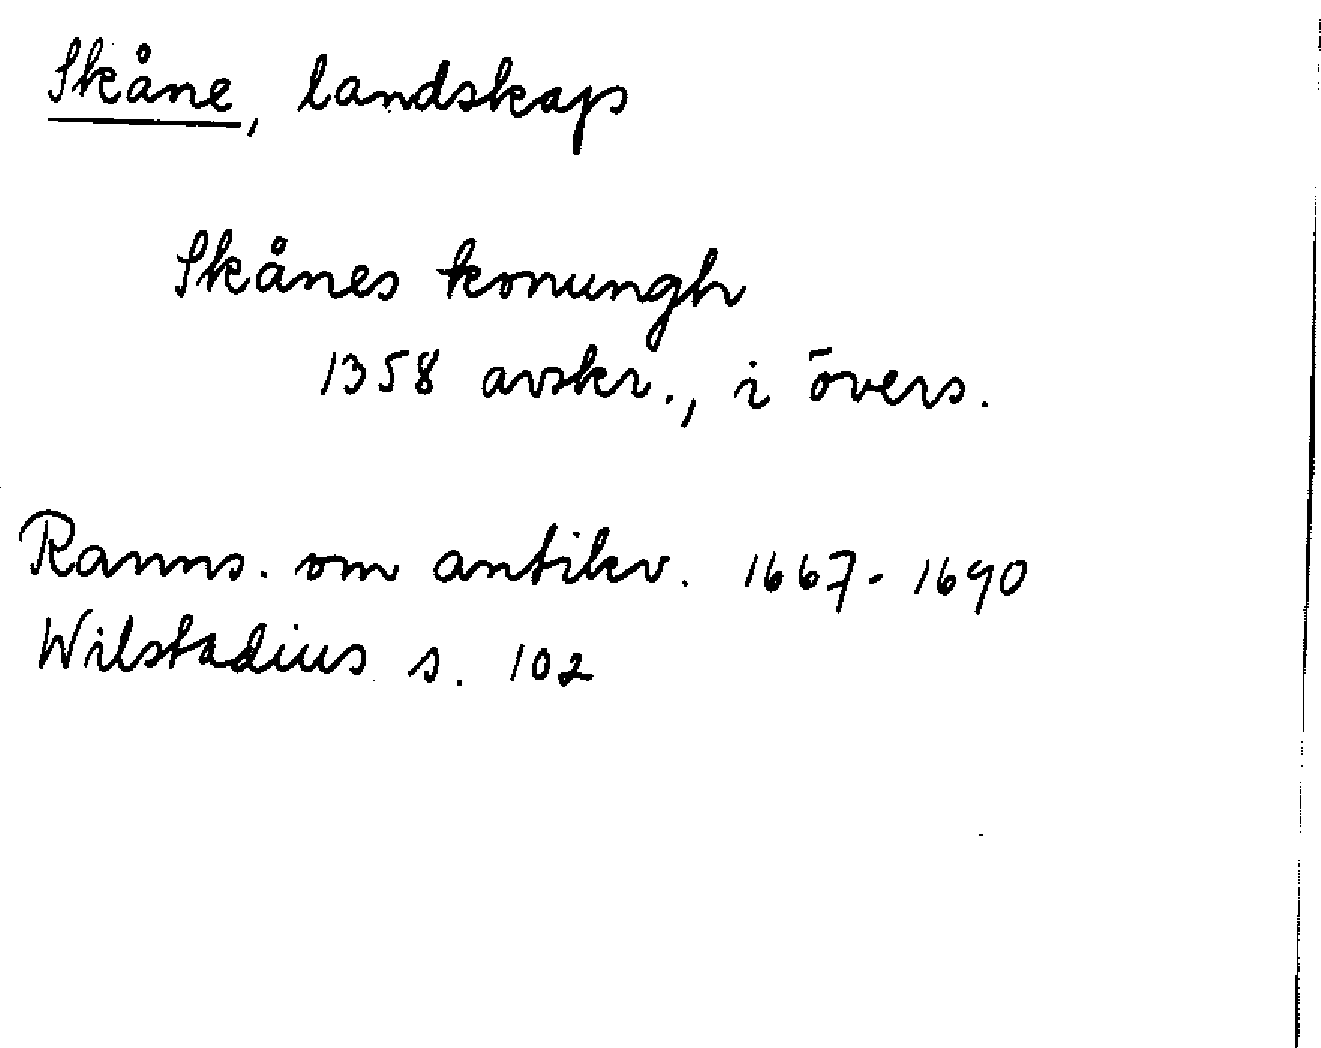 Skåne, landskap
Skånes konungh
1358 avskr., i övers.
Ranns. om antikv. 1667-1690
Wilstadius s. 102